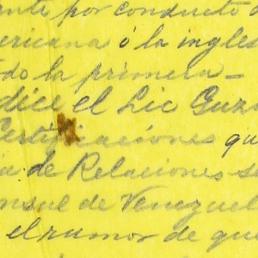 ante por conducto d
ericana ó la ingles
do la primera-
dice el Lic Guz
Certificaciones qu
ia de Relaciones se
nsul de Venezuel
el rumor de que